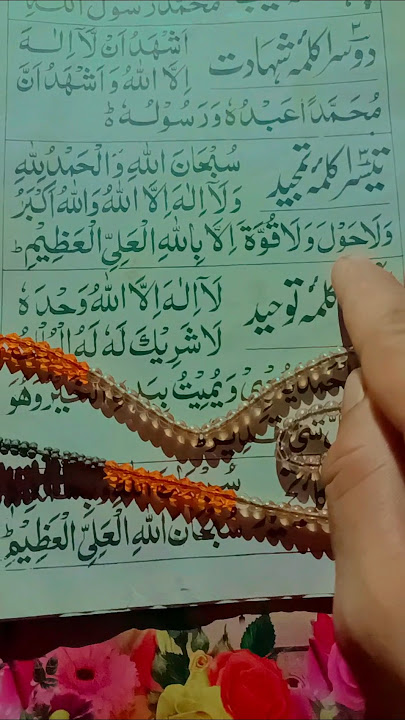 محمد رسول الله
دوسرا کلمہ شہادت اَشْهَدُ اَنْ لَّآ اِلٰهَ
اِلَّا اللهُ وَاَشْهَدُ اَنَّ
مُحَمَّدًا عَبْدُهٗ وَرَسُوْلُهٗ ؕ
تیسرا کلمہ تمجید سُبْحَانَ اللهِ وَالْحَمْدُ لِلّٰهِ
وَلَآ اِلٰهَ اِلَّا اللهُ وَاللهُ اَكْبَرُ
وَلَا حَوْلَ وَلَا قُوَّةَ اِلَّا بِاللهِ الْعَلِيِّ الْعَظِيْمِ ؕ
کلمہ توحید لَآ اِلٰهَ اِلَّا اللهُ وَحْدَهٗ
لَا شَرِيْكَ لَهٗ لَهُ
وَيُمِيْتُ وَهُوَ
سُبْحَانَ اللهِ الْعَلِيِّ الْعَظِيْمِ ؕ